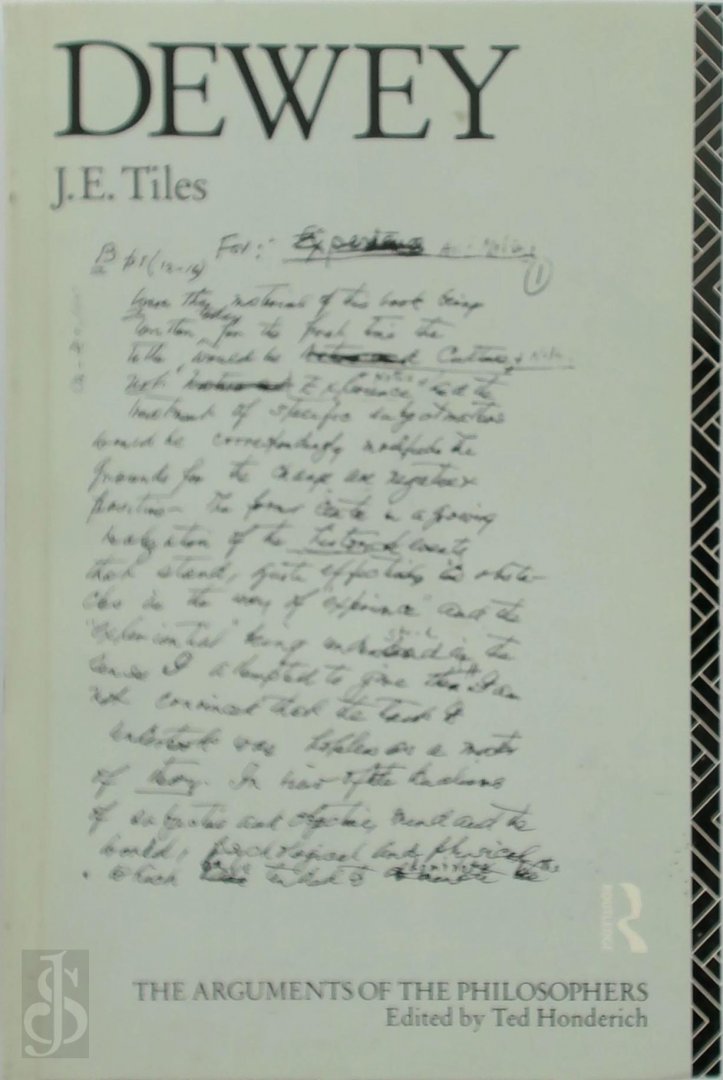 DEWEY
J.E. Tiles
For: Experience
1
Were the material of this book being
written today, for the first time the
title would be Culture &
not Experience and the
treatment of specific subject matters
would be correspondingly modified. The
grounds for the change are negative &
positive. The former center in a growing
realization of the historical events
that stand, quite effectively as obsta-
cles in the way of "experience" and the
"experiential" being understood in the
sense I attempted to give them. I am
not convinced that the task I
undertook was hopeless as a matter
of theory. In view of the dualisms
of subjective and objective, mind and the
world, psychological and physical
which
ROUTLEDGE
THE ARGUMENTS OF THE PHILOSOPHERS
Edited by Ted Honderich
JS